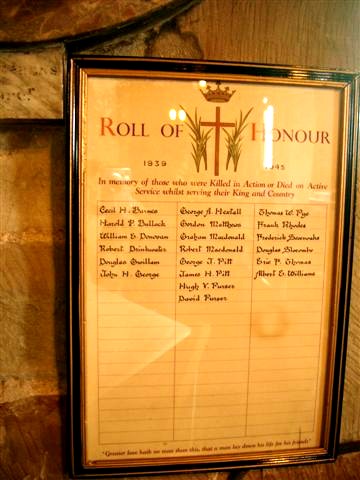 ROLL OF HONOUR
1939 1945
In memory of those who were Killed in Action or Died on Active
Service whilst serving their King and Country
Cecil H. Barnes
Harold P. Bullock
William E. Donovan
Robert Drinkwater
Douglas Gwillam
John H. George
George A. Hextall
Gordon Matthews
Graham Macdonald
Robert Macdonald
George J. Pitt
James H. Pitt
Hugh V. Purser
David Purser
Thomas W. Pye
Frank Rhodes
Frederick
Douglas Slocombe
Eric P. Thomas
Albert G. Williams
"Greater love hath no man than this, that a man lay down his life for his friends"